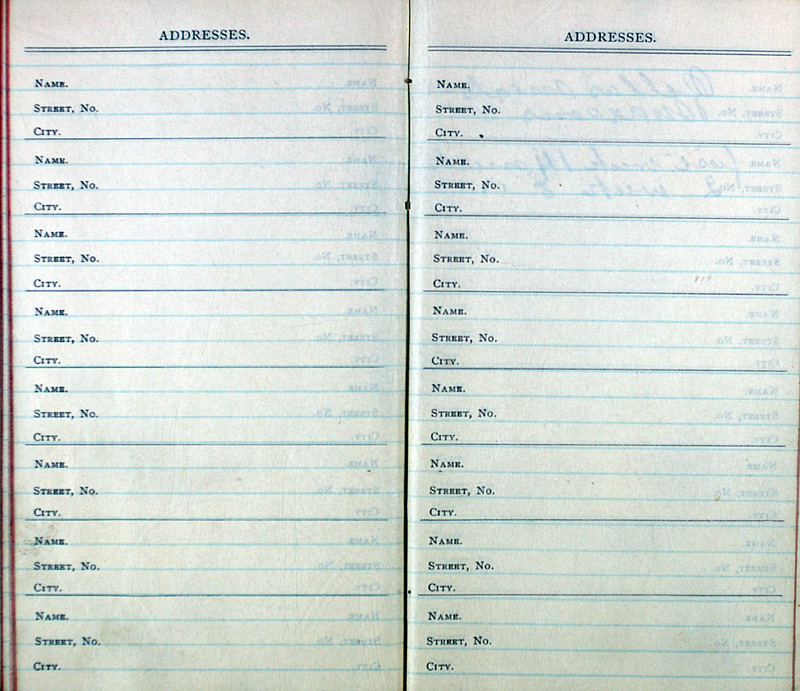 ADDRESSES.
NAME.
STREET, No.
CITY.
NAME.
STREET, No.
CITY.
NAME.
STREET, No.
CITY.
NAME.
STREET, No.
CITY.
NAME.
STREET, No.
CITY.
NAME.
STREET, No.
CITY.
NAME.
STREET, No.
CITY.
NAME.
STREET, No.
CITY.
ADDRESSES.
NAME.
STREET, No.
CITY.
NAME.
STREET, No.
CITY.
NAME.
STREET, No.
CITY.
NAME.
STREET, No.
CITY.
NAME.
STREET, No.
CITY.
NAME.
STREET, No.
CITY.
NAME.
STREET, No.
CITY.
NAME.
STREET, No.
CITY.